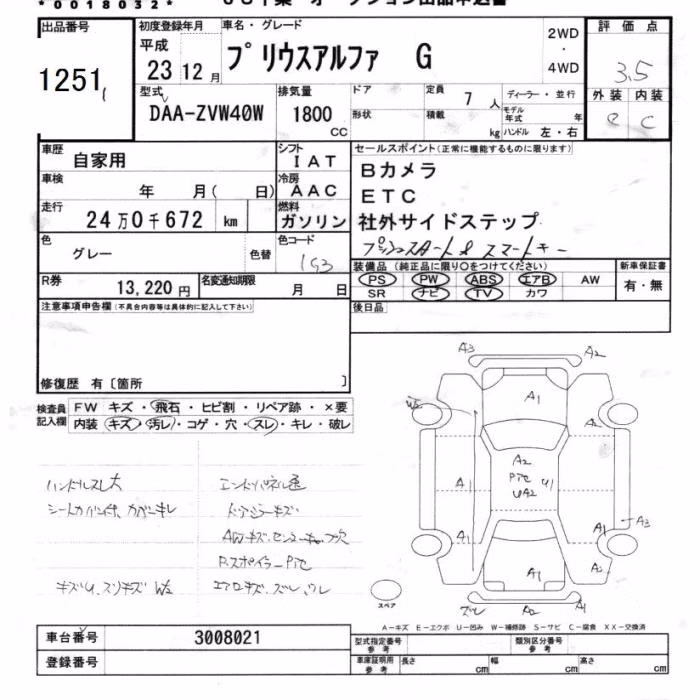 *0018032*
出品番号
1251
初度登録年月
平成
23 12 月
車名・グレード
プリウスアルファ G
2WD
・
4WD
評価点
3.5
外装 内装
C C
型式
DAA-ZVW40W
排気量
1800
CC
ドア
形状
定員
7 人
積載
kg
ディーラー・並行
モデル年式 年
ハンドル 左・右
車歴
自家用
シフト
IAT
車検
年 月( 日)
冷房
AAC
走行
24万0千672 km
燃料
ガソリン
色
グレー
色替
色コード
1G3
R券
13,220 円
名変通知期限
月 日
セールスポイント(正常に機能するものに限ります)
Bカメラ
ETC
社外サイドステップ
プッシュスタート & スマートキー
装備品(純正品に限り○をつけてください)
PS PW ABS エアB AW
SR ナビ TV カワ
新車保証書
有・無
後日品
注意事項申告欄(不具合内容等は具体的に記入して下さい)
修復歴 有〔箇所 〕
検査員
記入欄
FW キズ・飛石・ヒビ割・リペア跡・×要
内装 キズ・汚レ・コゲ・穴・スレ・キレ・破レ
ハンドルスレ大
ドアミラーキズ
RスポイラーPTC
キズU、スリキズ W2
エアロキズ、ズレ、ワレ
A3
A2
A1
W2
A2
PTC
UA2
U1
A1
A1
A1
A3
A2
A1
ズレ
A2
A1
スペア
A-キズ E-エクボ U-凹み W-補修跡 S-サビ C-腐食 XX-交換済
車台番号
3008021
登録番号
型式指定番号
参考
類別区分番号
参考
車庫証明用
参考
長さ cm
幅 cm
高さ cm